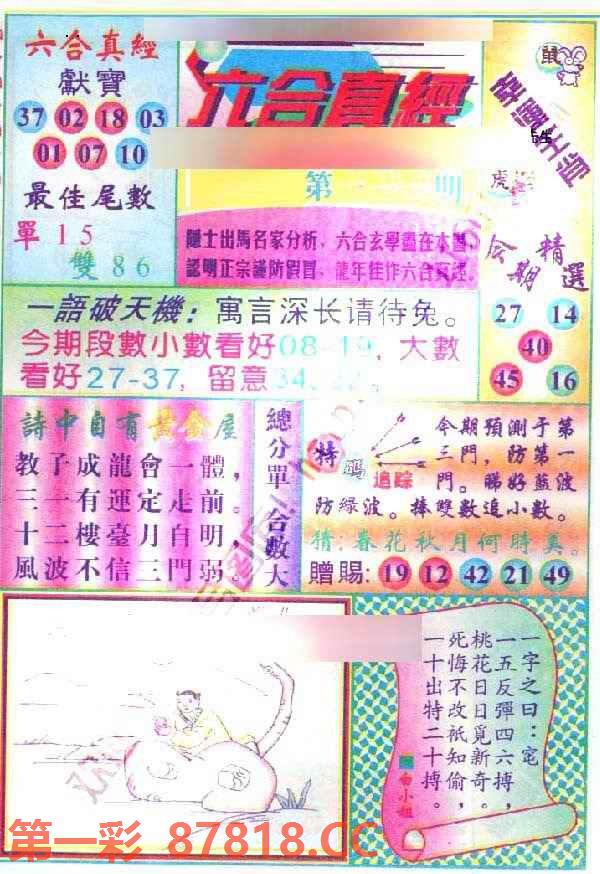 六合真經
獻寶
37 02 18 03
01 07 10
最佳尾數
單15
雙86
六合真經
第 期
隱士出馬名家分析，六合玄學盡在本圖，
認明正宗謹防假冒，龍年佳作六合真經。
鼠
幸運生肖
虎
今期精選
27 14
40
45 16
一語破天機：寓言深长请待兔。
今期段數小數看好08-19，大數
看好27-37，留意34、
詩中自有黃金屋
教子成龍會一體，
三一有運定走前。
十二樓臺月自明，
風波不信三門弱。
總分單 合數大
特碼
追踪
令期預測于第
三門，防第一
門。睇好藍波
防綠波。捧雙數追小數。
猜：春花秋月何時真。
贈賜：19 12 42 21 49
一字之曰：宅
一五反彈四六搏，
桃花日日覓新奇。
死悔不改祇知偷，
一十出特二十搏。
白小姐
第一彩 87818.CC